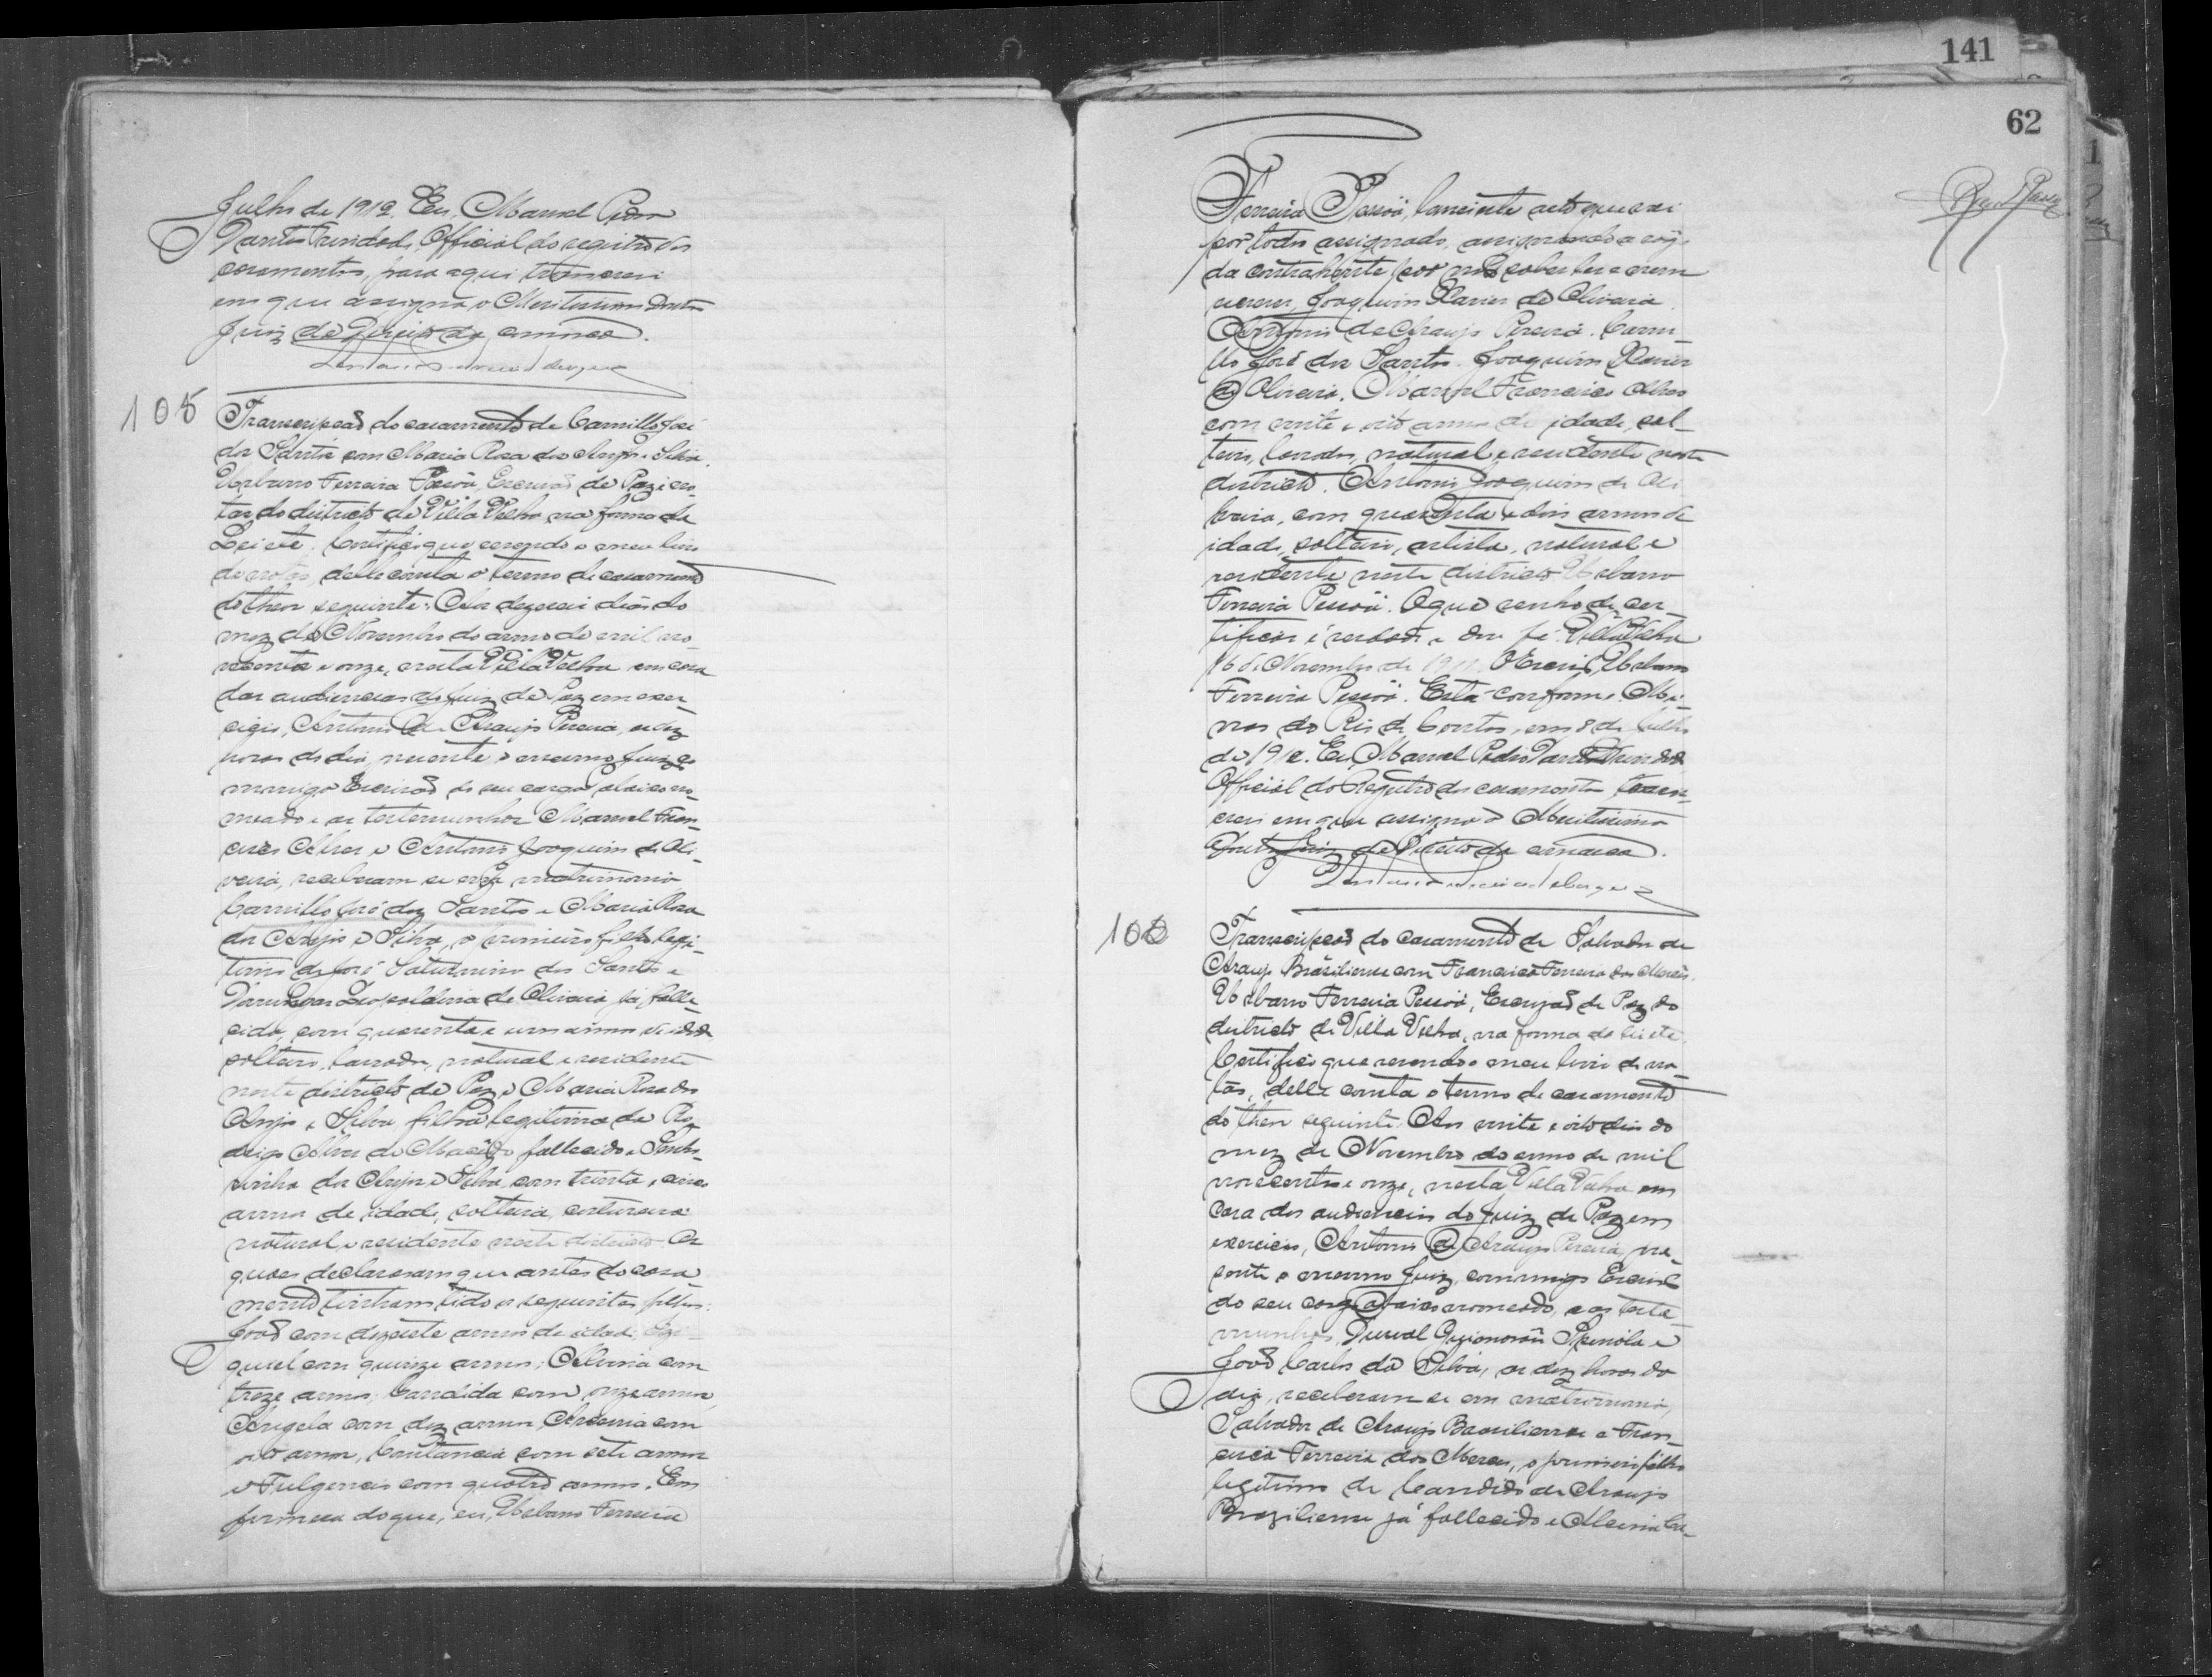 Julho de 1912. Eu, Manoel Pedro
Dantas Trindade, Official do registro dos
casamentos, para aqui transcrevi
em que assigna o Meritissimo Doutor
Juiz de Direito da comarca.
105
Transcripção do casamento de Camillo José
dos Santos com Maria Rosa dos Anjos e Silva.
Urbano Ferreira Pessôa, Escrivão de Paz e no-
tas do districto de Villa Velha, na forma da
Lei etc. Certifico que revendo o meu livro
de notas, delle consta o termo de casamento
do theor seguinte: Aos dezeseis dias do
mez de Novembro do anno de mil no-
vecentos e onze, nesta Villa Velha em casa
das audiencias do Juiz de Paz em exer-
cicio, Antonio de Araujo Pereira, as dez
horas do dia, presente o mesmo Juiz
commigo Escrivão do seu cargo abaixo no-
meado e as testemunhas Manoel Fran-
cisco Alves e Antonio Joaquim de Oli-
veira, receberam se em matrimonio
Camillo José dos Santos e Maria Rosa
dos Anjos e Silva, o primeiro filho legi-
timo de José Saturnino dos Santos e
Leopoldina de Oliveira já falle-
cida, com quarenta e um annos de idade
solteiro, lavrador, natural e residente
neste districto de Paz e Maria Rosa dos
Anjos e Silva filha legitima de Ro-
drigo Alves de Macêdo fallecido e
dos Anjos e Silva, com trinta e cinco
annos de idade, solteira, costureira
natural e residente neste districto. Os
quaes declararam que antes do casa-
mento tinham tido os seguintes filhos:
João com dezesete annos de idade, Eze-
quiel com quinze annos; Alvina com
treze annos; Candida com onze annos,
Angela com dez annos, Arsenia com
oito annos, Constancia com sete annos
e Fulgencio com quatro annos. Em
firmeza do que, eu, Urbano Ferreira
141
62
Ferreira Pessôa, lancei este acto que vai
por todos assignado, assignando a rogo
da contrahente por não saber ler e nem
escrever, Joaquim Xavier de Oliveira.
Antonio de Araujo Pereira. Camil-
lo José dos Santos. Joaquim Xavier
de Oliveira. Manoel Francisco Alves
com vinte e oito annos de idade, sol-
teiro, lavrador, natural e residente neste
districto. Antonio Joaquim de Oli-
veira, com quarenta e dois annos de
idade, solteiro, artista, natural e
residente neste districto. Urbano
Ferreira Pessôa. O que venho de cer-
tificar é verdade e dou fé. Villa Velha
16 de Novembro de 1911. O Escrivão, Urbano
Ferreira Pessôa. Está conforme. Mi-
nas do Rio de Contas, em 8 de Julho
de 1912. Eu, Manoel Pedro Dantas Trindade
Official do Registro dos casamentos trans-
crevi em que assigna o Meritissimo
Doutor Juiz de Direito da comarca.
106
Transcripção do casamento de Salvador de
Araujo Brasiliense com Francisca Ferreira das Mercês.
Urbano Ferreira Pessôa, Escrivão de Paz do
districto de Villa Velha, na forma da Lei etc.
Certifico que revendo o meu livro de no-
tas, delle consta o termo de casamento
do theor seguinte. Aos vinte e oito dias do
mez de Novembro do anno de mil
novecentos e onze, nesta Villa Velha em
casa das audiencias do Juiz de Paz em
exercicio, Antonio de Araujo Pereira, pre-
sente o mesmo Juiz, commigo Escrivão
do seu cargo abaixo nomeado, e as teste-
munhas, Durval Spinola e
João Carlos da Silva, as dez horas do
dia, receberam se em matrimonio,
Salvador de Araujo Brasiliense e Fran-
cisca Ferreira das Mercês, o primeiro filho
legitimo de Candido de Araujo
Braziliense já fallecido e